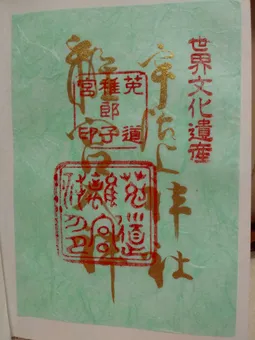 世界文化遺産
宇治上神社
離宮
菟道
稚郎子
宮印
菟道
離宮